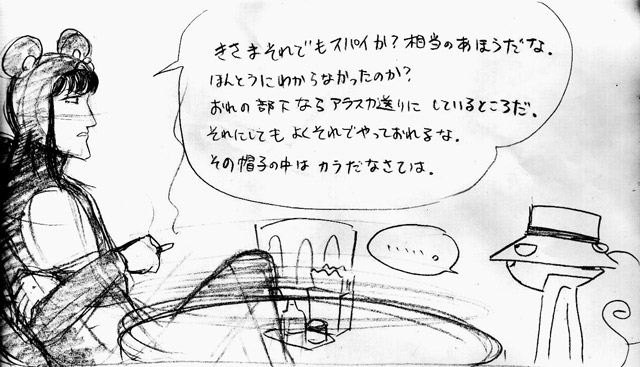 きさまそれでもスパイか?相当のあほうだな.
ほんとうにわからなかったのか?
おれの部下ならアラスカ送りにしているところだ.
それにしてもよくそれでやっておれるな.
その帽子の中はカラだなさては.
.....。